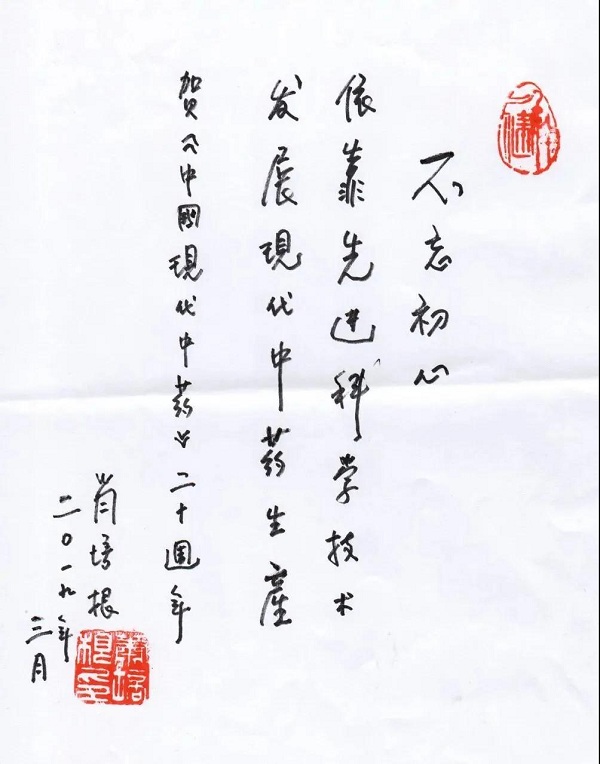 不忘初心
依靠先进科学技术
发展現代中药生産
贺《中國現代中药》二十週年
肖培根
二〇一九年
三月